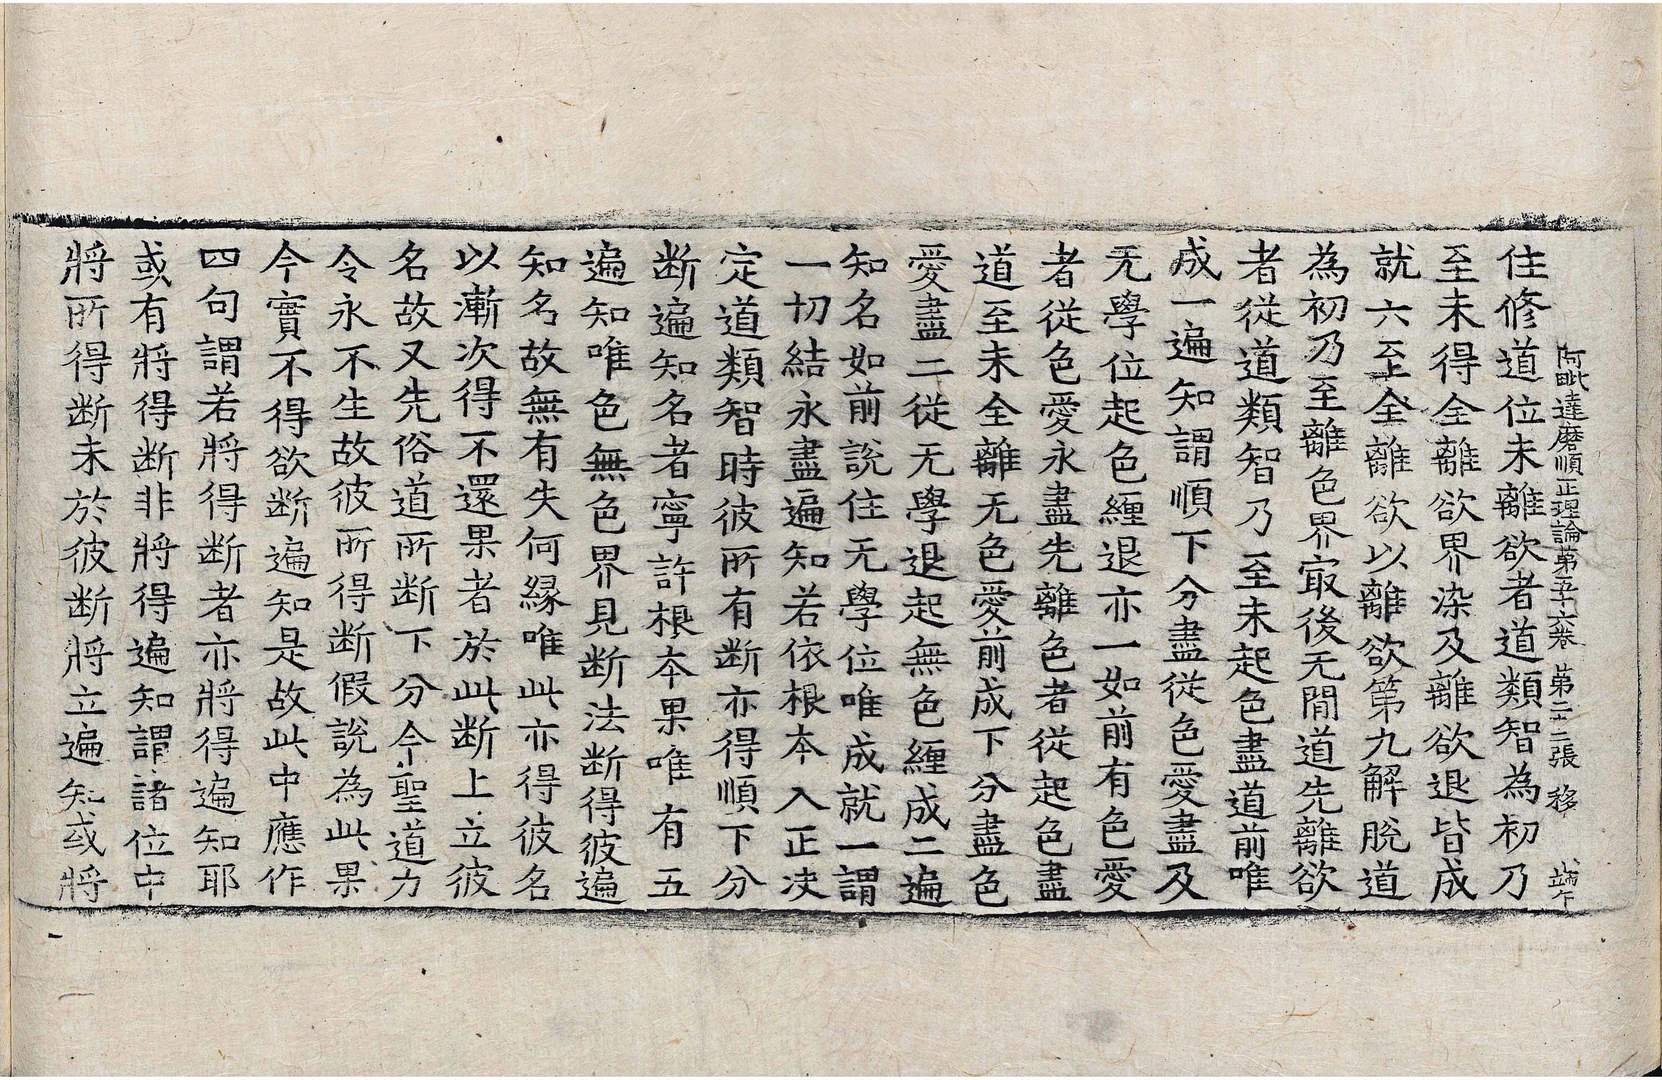 阿毗達磨順正理論第五十六卷 第二十二張 移
住修道位未離欲者道類智為初乃
至未得全離欲界染及離欲退皆成
就六至全離欲以離欲第九解脫道
為初乃至離色界㝡後无閒道先離欲
者從道類智乃至未起色盡道前唯
成一遍知謂順下分盡從色愛盡及
无學位起色纏退亦一如前有色愛
者從色愛永盡先離色者從起色盡
道至未全離无色愛前成下分盡色
愛盡二從无學退起無色纏成二遍
知名如前說住无學位唯成就一謂
一切結永盡遍知若依根本入正决
定道類智時彼所有断亦得順下分
断遍知名者寧許根本果唯有五
遍知唯色無色界見断法断得彼遍
知名故無有失何緣唯此亦得彼名
以漸次得不還果者於此断上立彼
名故又先俗道所断下分今聖道力
令永不生故彼所得断假說為此果
今實不得欲断遍知是故此中應作
四句謂若將得断者亦將得遍知耶
或有將得断非將得遍知謂諸位中
將所得断未於彼断將立遍知或將